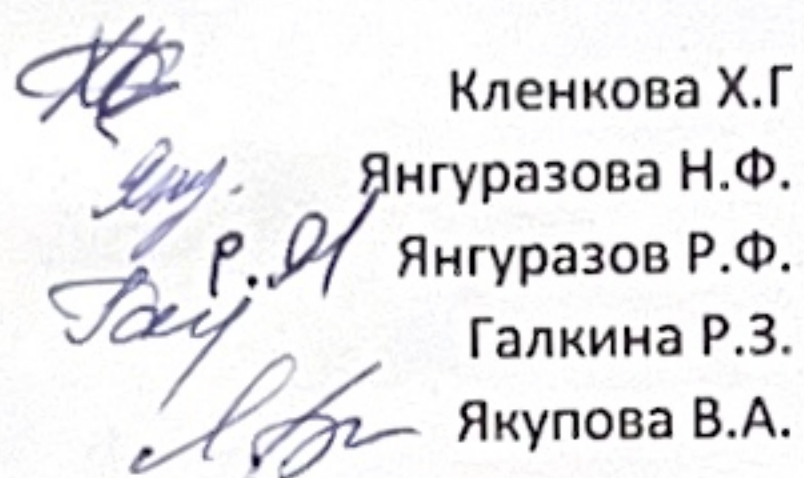 Кленкова Х.Г
Янгуразова Н.Ф.
Р.Я Янгуразов Р.Ф.
Галкина Р.З.
Якупова В.А.